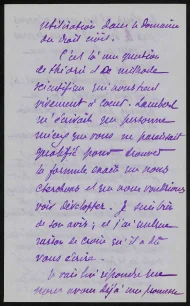 utilisation dans le domaine
du droit civil.
C'est là une question
de théorie et de méthode
scientifique qui nous tient
vivement à cœur. Lambert
m'écrivait que personne
mieux que vous ne paraissait
qualifié pour trouver
la formule exacte que nous
cherchons et que nous voudrions
voir développer. Je suis très
de son avis ; et j'ai même
raison de croire qu'il a dû
vous écrire.
Je vais lui répondre que
nous avons déjà une promesse